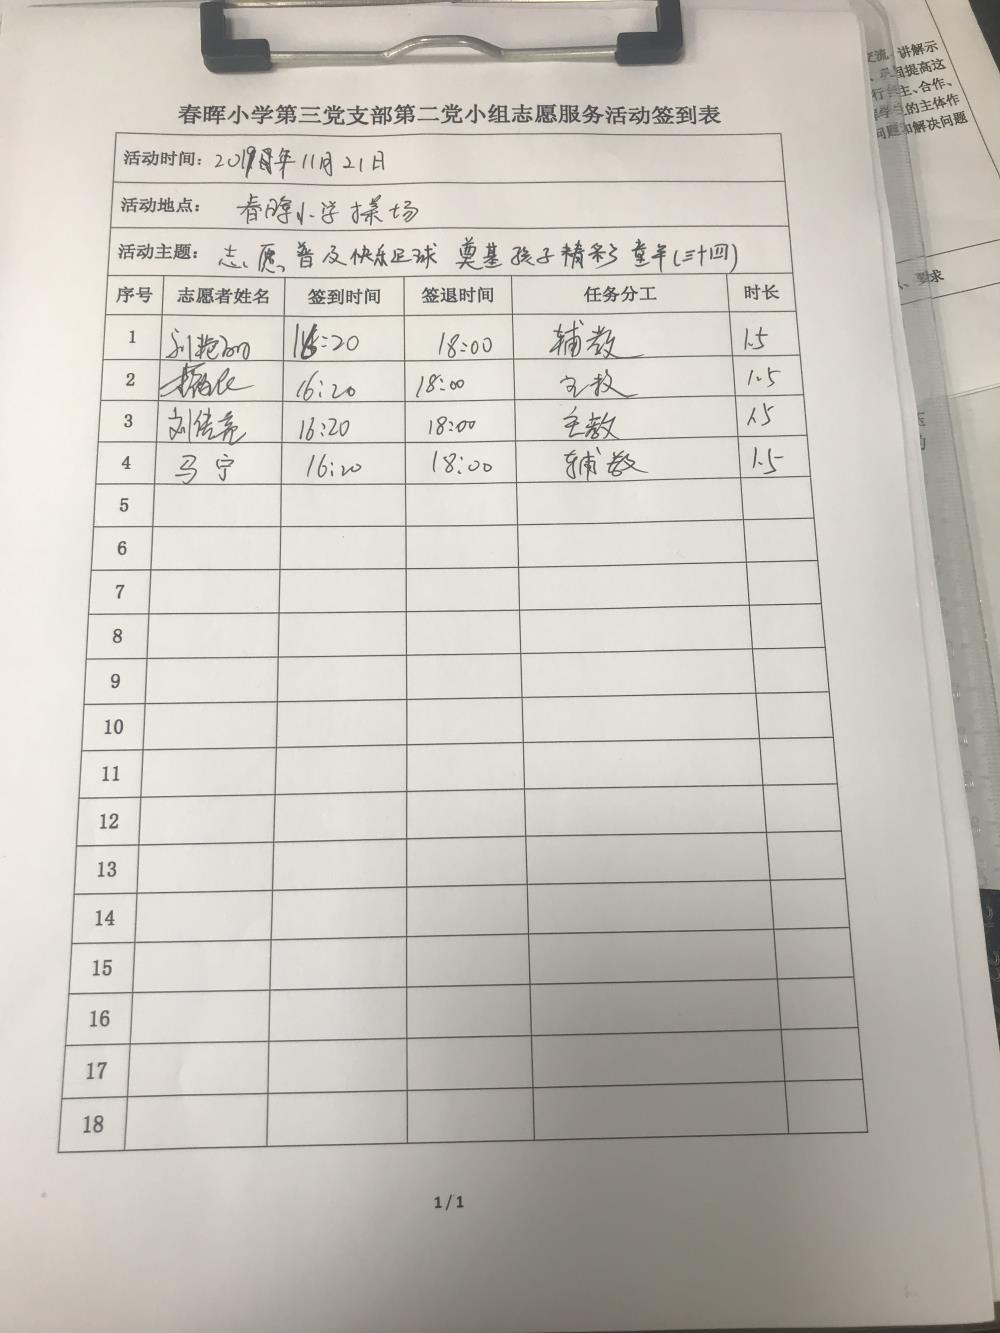 春晖小学第三党支部第二党小组志愿服务活动签到表
活动时间：2019年11月21日
活动地点：春晖小学操场
活动主题：志愿普及快乐足球 奠基孩子精彩童年(三十四)
序号 志愿者姓名 签到时间 签退时间 任务分工 时长
1 16:20 18:00 辅教 1.5
2 16:20 18:00 主教 1.5
3 刘传亮 16:20 18:00 主教 1.5
4 马宁 16:20 18:00 辅教 1.5
5
6
7
8
9
10
11
12
13
14
15
16
17
18
1 / 1
讲解示
巩固提高这
主、合作、
的主体作
问题和解决问题
要求